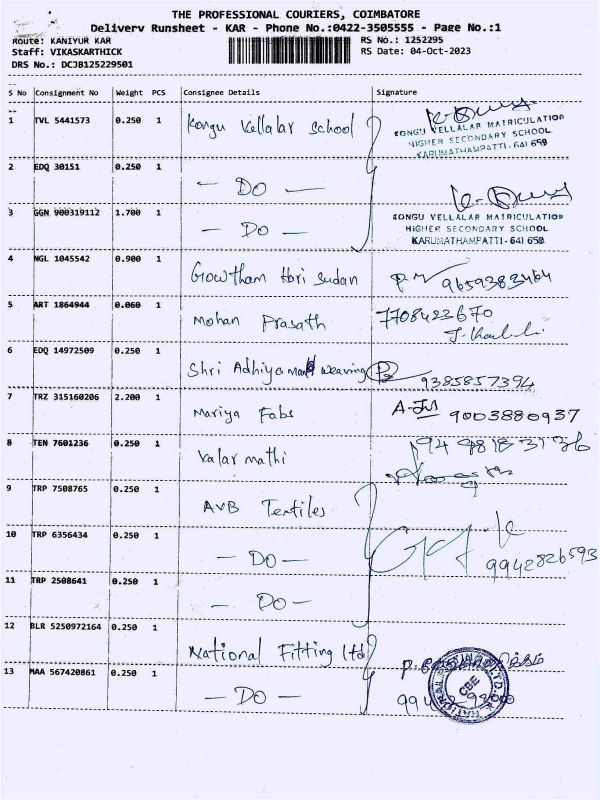 THE PROFESSIONAL COURIERS, COIMBATORE
Delivery Runsheet - KAR - Phone No.:0422-3505555 - Page No.:1
Route: KANIYUR KAR RS No.: 1252295
Staff: VIKASKARTHICK RS Date: 04-Oct-2023
DRS No.: DCJB125229501
S No Consignment No Weight PCS Consignee Details Signature
1 TVL 5441573 0.250 1 Kongu Vellalar School
KONGU VELLALAR MATRICULATION
HIGHER SECONDARY SCHOOL
KARUMATHAMPATTI - 641 659
2 EDQ 30151 0.250 1 — DO —
3 GGN 900319112 1.700 1 — DO —
KONGU VELLALAR MATRICULATION
HIGHER SECONDARY SCHOOL
KARUMATHAMPATTI - 641 659
4 NGL 1045542 0.900 1 Gowtham Hari Sudan 9659383464
5 ART 1864944 0.060 1 Mohan Prasath 7708423670
6 EDQ 14972509 0.250 1 Shri Adhiyaman Weaving 9385857394
7 TRZ 315160206 2.200 1 Mariya Fabs 9003880937
8 TEN 7601236 0.250 1 Valarmathi
9 TRP 7508765 0.250 1 AVB Textiles
10 TRP 6356434 0.250 1 — DO — 9942826593
11 TRP 2508641 0.250 1 — DO —
12 BLR 5250972164 0.250 1 National Fitting ltd
13 MAA 567420861 0.250 1 — DO —
CBE